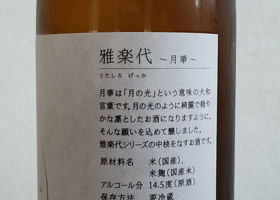 雅楽代 ～月華～
うたしろ げっか
月華は「月の光」という意味の大和
言葉です。月の光のように綺麗で穏や
かな凛としたお酒になりますように、
そんな願いを込めて醸しました。
雅楽代シリーズの中核をなすお酒です。
原材料名 米(国産)、
米麹(国産米)
アルコール分 14.5度(原酒)
保存方法 要冷蔵